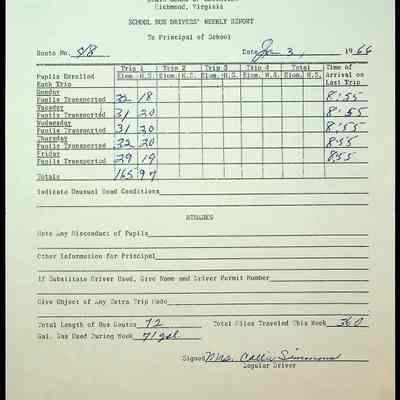 Richmond, Virginia
SCHOOL BUS DRIVERS' WEEKLY REPORT
To Principal of School
Route No. 918 Date Jan 3, 1966
Trip 1 Trip 2 Trip 3 Trip 4 Total Time of
Pupils Enrolled Elem. H.S. Elem. H.S. Elem. H.S. Elem. H.S. Elem. H.S. Arrival on
Each Trip Last Trip
Monday
Pupils Transported 32 18 8:55
Tuesday
Pupils Transported 31 20 8:55
Wednesday
Pupils Transported 31 20 8:55
Thursday
Pupils Transported 32 20 8:55
Friday
Pupils Transported 29 19 8:55
Totals 165 97
Indicate Unusual Road Conditions
REMARKS
Note Any Misconduct of Pupils
Other Information for Principal
If Substitute Driver Used, Give Name and Driver Permit Number
Give Object of Any Extra Trip Made
Total Length of Bus Routes 72 Total Miles Traveled This Week 360
Gal. Gas Used During Week 71 gal
Signed Mrs. Callie Simmons
Regular Driver